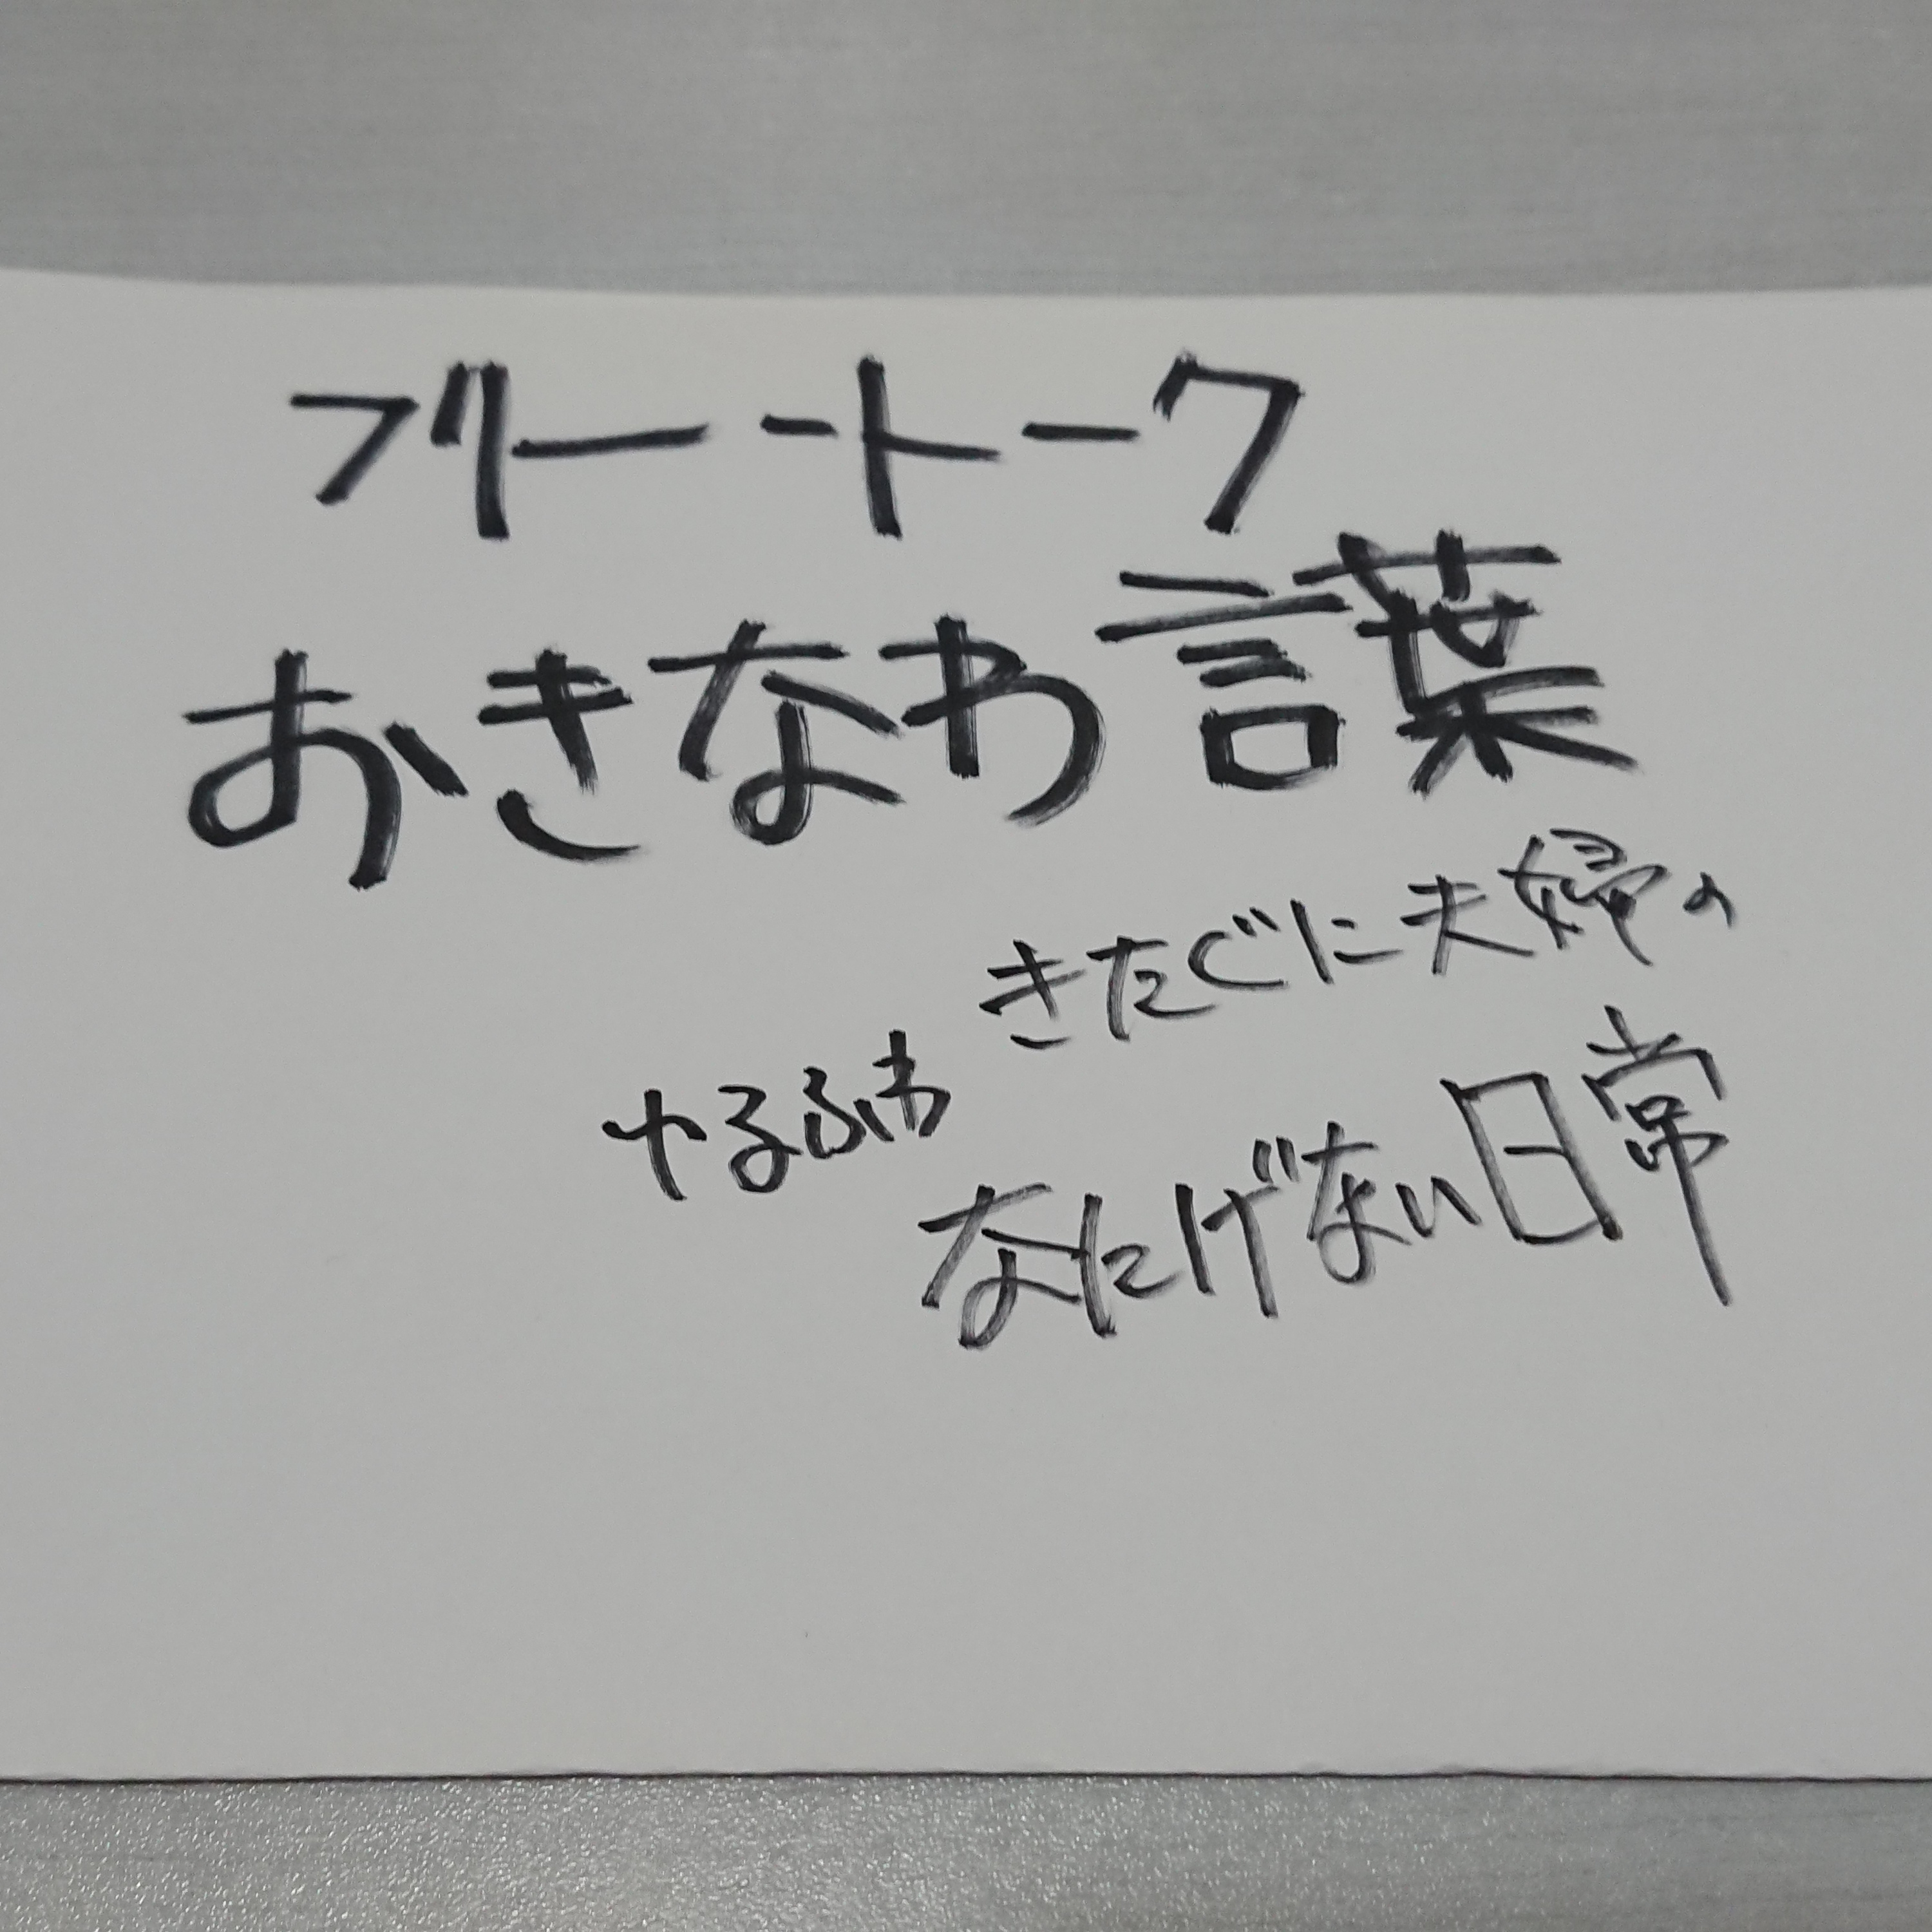 フリートーク
おきなわ言葉
きたぐに夫婦の
ゆるふわ
なにげない日常